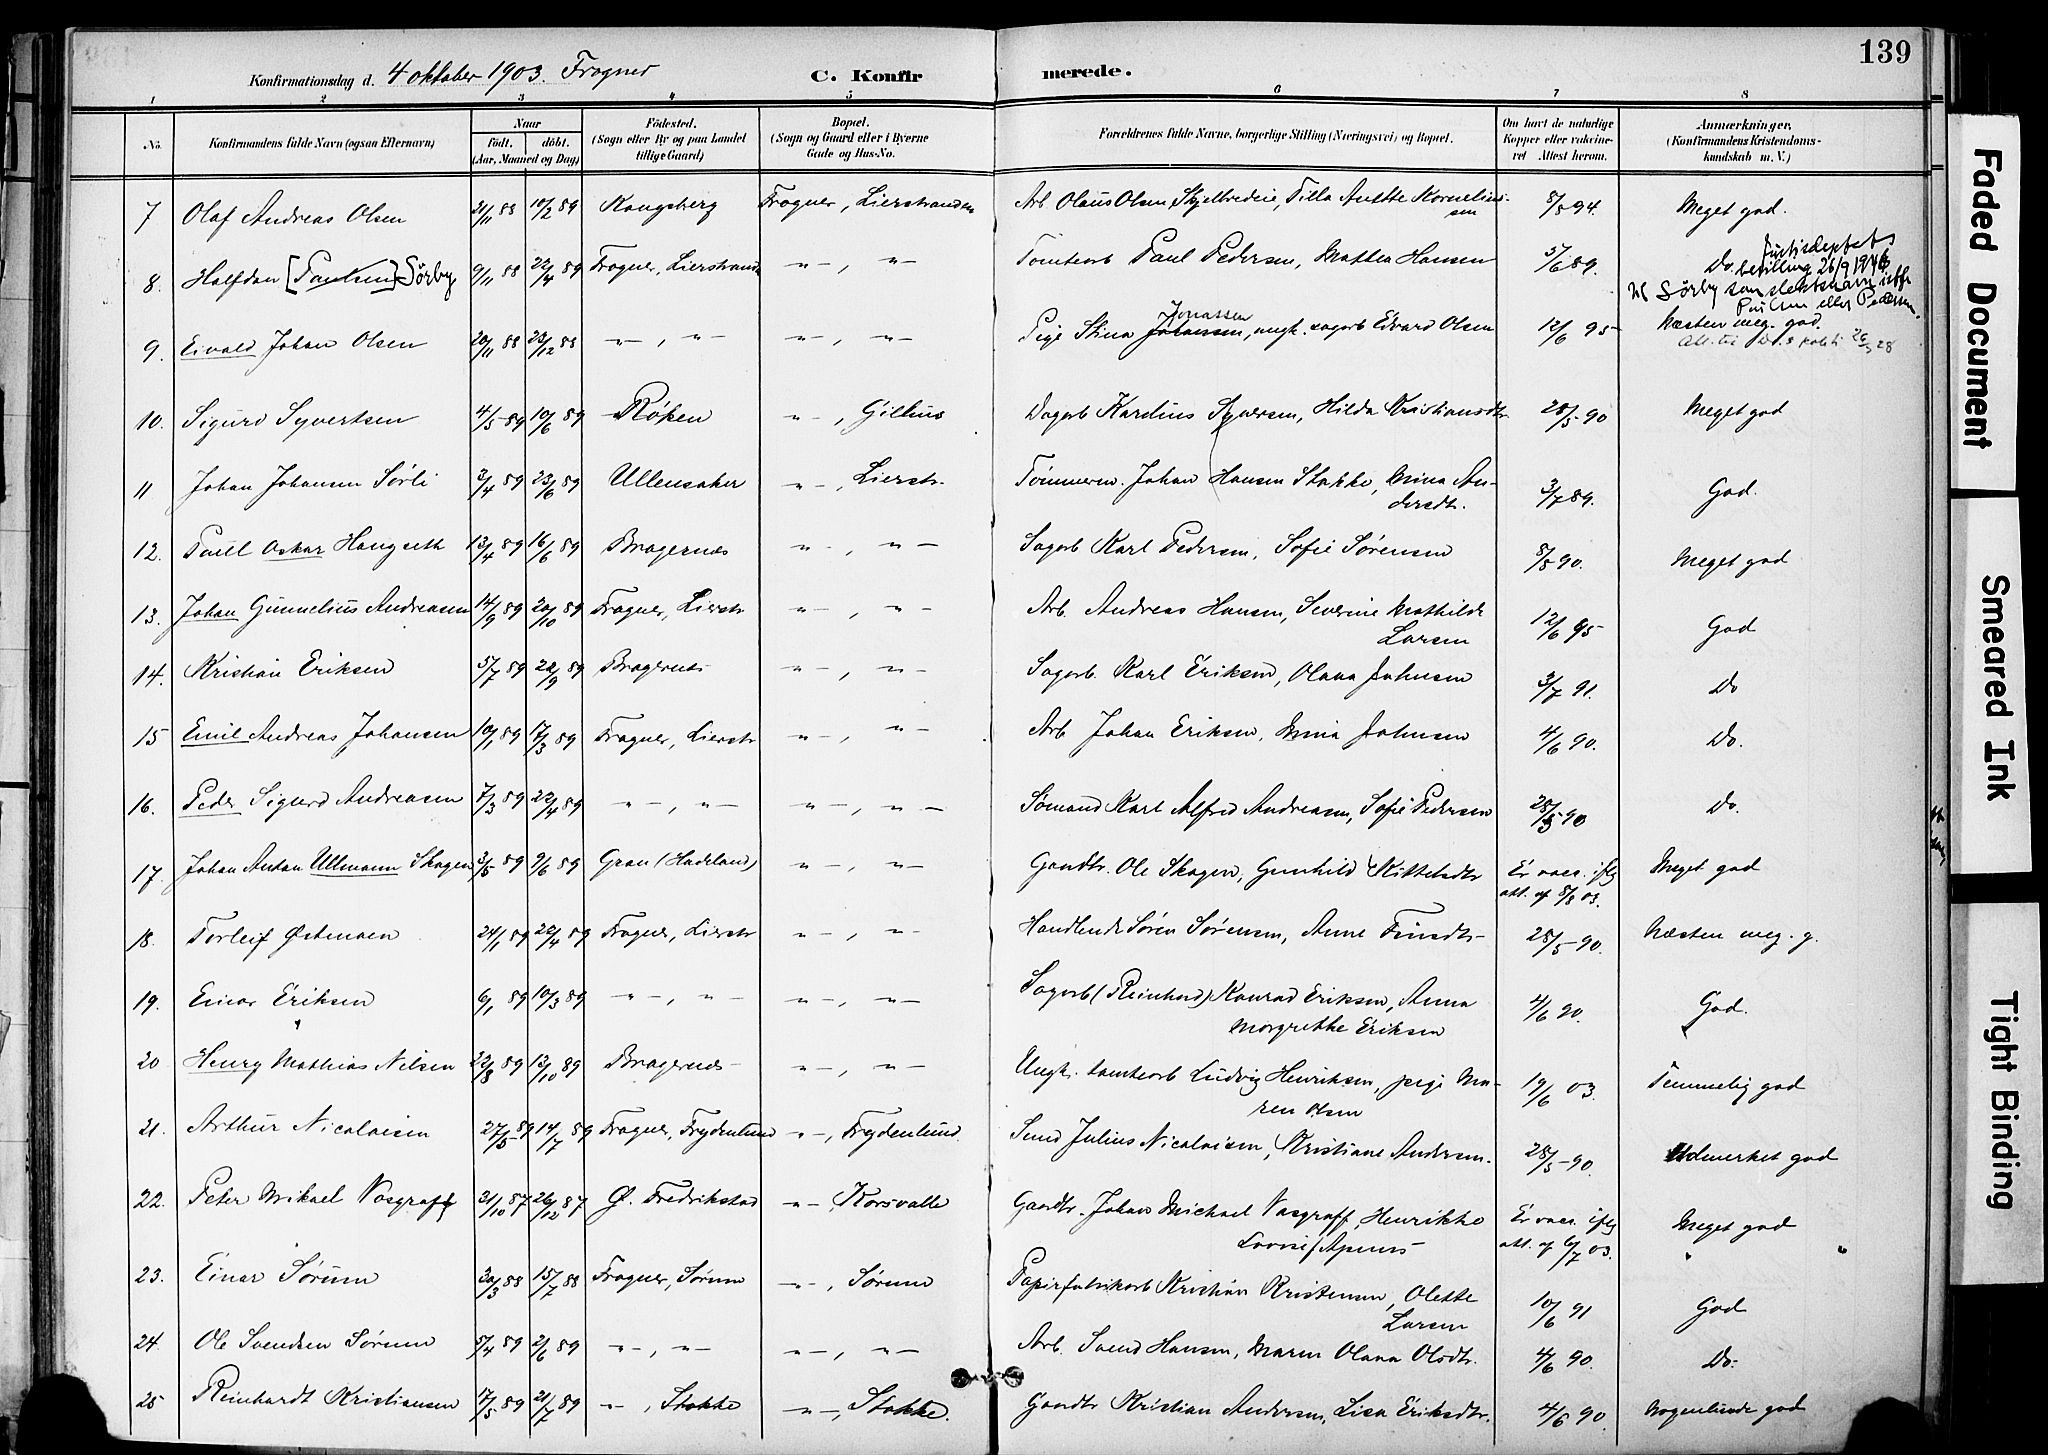 139
Konfirmationsdag d. 4 oktober 1903. Frogner C. Konfirmerede.
1 2 3 4 5 6 7 8
No. Konfirmandens fulde Navn (ogsaa Efternavn) Naar født. døbt. (Aar, Maaned og Dag) Fødested. (Sogn eller By og paa Landet tillige Gaard) Bopæl. (Sogn og Gaard eller i Byerne Gade og Hus-No. Forældrenes fulde Navne, borgerlige Stilling (Næringsvei) og Bopæl. Om havt de naturlige Kopper eller vakcineret Attest herom. Anmærkninger. (Konfirmandens Kristendomskundskab m. V.)
7 Olaf Andreas Olsen 21/11 88 10/2 89 Kongsberg Frogner, Lierstranden Arb. Olaus Olsen Skjelbredeie, Tilla Anette Korneliussen 8/5 94. Meget god.
8. Halfdan [Paulsen] Sörby 9/11 88 22/4 89 Frogner, Lierstrand -"-, -"- Tomtearb Paul Pedersen, Mathea Hansen 5/6 89. Do. Justisdeptets bevilling 26/9 1946 til Sörby som slektsnavn istf. Paulsen eller Pedersen.
9. Eivald Johan Olsen 20/11 88 23/12 88 -"-, -"- -"-, -"- Pige Stina Johansen Jonassen, ungk. sagarb Edvard Olsen 12/6 95 Næsten meg. god.
10. Sigurd Syvertsen 4/5 89 10/6 89 Røken -"-, Gilhus Dagarb Karelius Syversen, Hilda Kristiansdtr 28/5 90 Meget god
11 Johan Johansen Sørli 3/4 89 23/6 89 Ullensaker -"-, Lierstr. Tømmerm. Johan Hansen Stokke, Mina Andersdtr. 3/7 89. God.
12. Paul Oskar Haugseth 13/4 89 16/6 89 Bragernæs -"-, -"- Sagarb Karl Pedersen, Sofie Sørensen 8/5 90. Meget god
13. Johan Gunnelius Andreasen 14/9 89 20/10 89 Frogner, Lierstr -"-, -"- Arb. Andreas Hansen, Severine Mathilde Larsen 12/6 95 God
14. Kristian Eriksen 5/7 89 22/9 89 Bragernes -"-, -"- Sagarb. Karl Eriksen, Olava Johnsen 3/7 91. Do
15 Emil Andreas Johansen 10/1 89 17/3 89 Frogner, Lierstr -"-, -"- Arb Johan Eriksen, Mina Johnsen 4/6 90. Do.
16. Peder Sigurd Andreasen 7/3 89 22/4 89 -"-, -"- -"-, -"- Sømand Karl Alfred Andreasen, Sofie Pedersen 28/5 90 Do.
17. Johan Anton Ullmann Skogen 3/5 89 9/6 89 Gran (Hadeland) -"-, -"- Gaardbr. Ole Skogen, Gunhild Kittelsdtr Er vacc. iflg att. af 8/8 03. Meget god
18. Torleif Østmoen 24/1 89 22/4 89 Frogner, Lierstr -"-, -"- Handlende Søren Sørensen, Anne Finsdtr 28/5 90. Næsten meg. g.
19. Einar Eriksen 6/1 89 10/3 89 -"-, -"- -"-, -"- Sagarb (Reinhard) Konrad Eriksen, Anna Margrethe Eriksen 4/6 90. God.
20 Henry Mathias Nilsen 22/8 89 13/10 89 Bragernes -"-, -"- Ungk. tomtearb Ludvig Henriksen, pige Maren Olsen 19/6 03. Temmelig god
21. Arthur Nicolaisen 27/5 89 14/7 89 Frogner, Frydenlund -"-, Frydenlund. Smed Julius Nicolaisen, Kristiane Andersen. 28/5 90. Udmerket god
22. Peter Mikael Vosgraff 31/10 87 26/12 87 Ø. Fredrikstad -"-, Korsvalle Gaardbr. Johan Michael Vosgraff, Henrikke Lovise Er vacc. iflg att. af 6/7 03. Meget god
23. Einar Sørum 30/3 88 15/7 88 Frogner, Sørum -"-, Sørum Papirfabrikarb Kristian Kristensen, Olette Larsen 10/6 91 God
24. Ole Svendsen Sørum 5/4 89 2/6 89 -"-, -"- -"-, -"- Arb. Svend Hansen, Maren Olava Olsdtr. 4/6 90. Do.
25 Reinhardt Kristiansen 17/5 89 21/7 89 -"-, Stokke -"-, Stokke. Gaardbr Kristian Andersen, Lisa Eriksdtr. 4/6 90 Nogenlunde god
Faded Document
Smeared Ink
Tight Binding